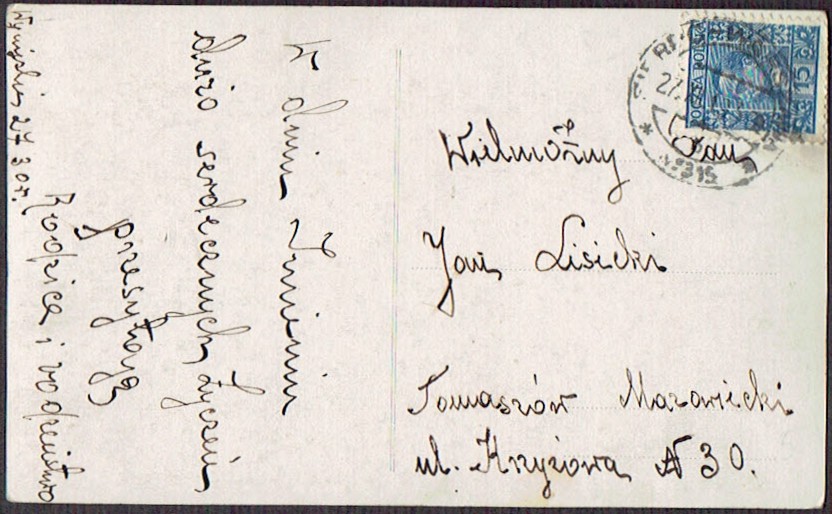 W dniu Imienin
dużo serdecznych życzeń
przesyłają
Rodzice i rodzeństwo
27 3 or.
Wielmożny Pan
Jan Lisicki
Tomaszów Mazowiecki
ul. Krzyżowa № 30.
POCZTA POLSKA
15 GR